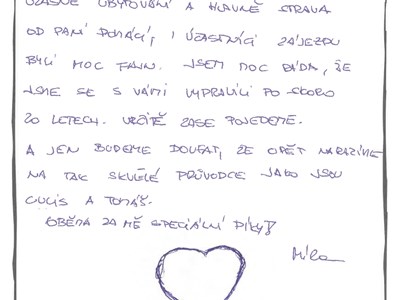 ÚŽASNÉ UBYTOVÁNÍ A HLAVNĚ STRAVA
OD PANÍ DOMÁCÍ, I ÚČASTNÍCI ZÁJEZDU
BYLI MOC FAJN. JSEM MOC RÁDA, ŽE
JSME SE S VÁMI VYPRAVILI PO SKORO
20 LETECH. URČITĚ ZASE POJEDEME.
A JEN BUDEME DOUFAT, ŽE OPĚT NARAZÍME
NA TAK SKVĚLÉ PRŮVODCE JAKO JSOU
A TOMÁŠ.
OBĚMA ZA MĚ SPECIÁLNÍ DÍKY!